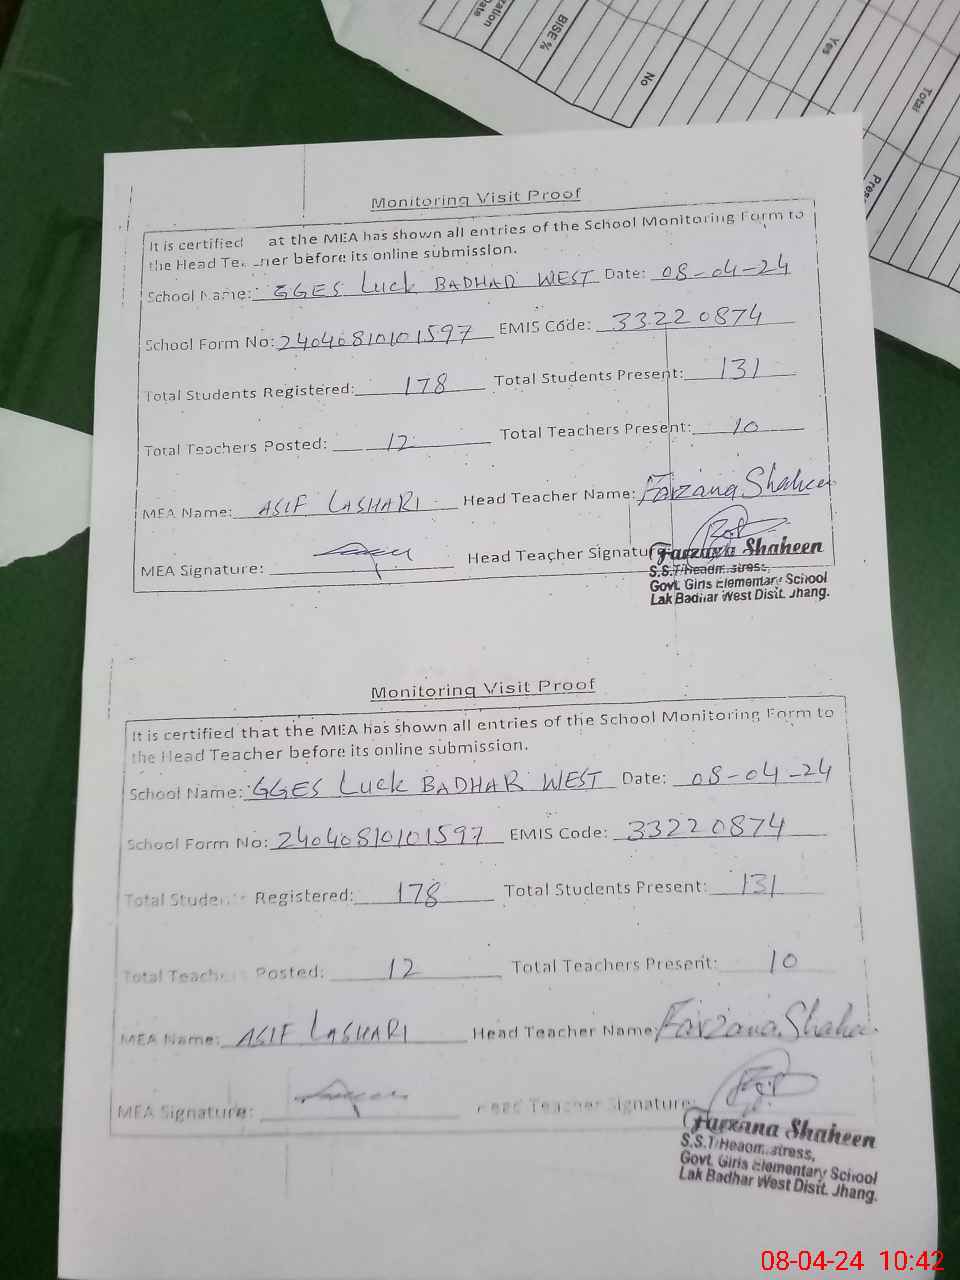 ization
mate
BISE %
No
Yes
Total
Pres
Monitoring Visit Proof
It is certified at the MEA has shown all entries of the School Monitoring Form to
the Head Te. ner before its online submission.
School Name: GGES Luck BADHAR WEST Date: 08-04-24
School Form No: 24040810101597 EMIS Code: 33220874
Total Students Registered: 178 Total Students Present: 131
Total Teachers Posted: 12 Total Teachers Present: 10
MEA Name: ASIF LASHARI Head Teacher Name: Farzana Shaheen
MEA Signature: Head Teacher Signatur
Farzana Shaheen
S.S.T/Headmistress,
Govt. Girls Elementary School
Lak Badhar West Disit. Jhang.
Monitoring Visit Proof
It is certified that the MEA has shown all entries of the School Monitoring Form to
the Head Teacher before its online submission.
School Name: GGES Luck BADHAR WEST Date: 08-04-24
School Form No: 24040810101597 EMIS Code: 33220874
Total Students Registered: 178 Total Students Present: 131
Total Teachers Posted: 12 Total Teachers Present: 10
MEA Name: ASIF LASHARI Head Teacher Name: Farzana Shahee
MEA Signature: Head Teacher Signature:
Farzana Shaheen
S.S.T/Headmistress,
Govt. Girls Elementary School
Lak Badhar West Disit. Jhang.
08-04-24 10:42